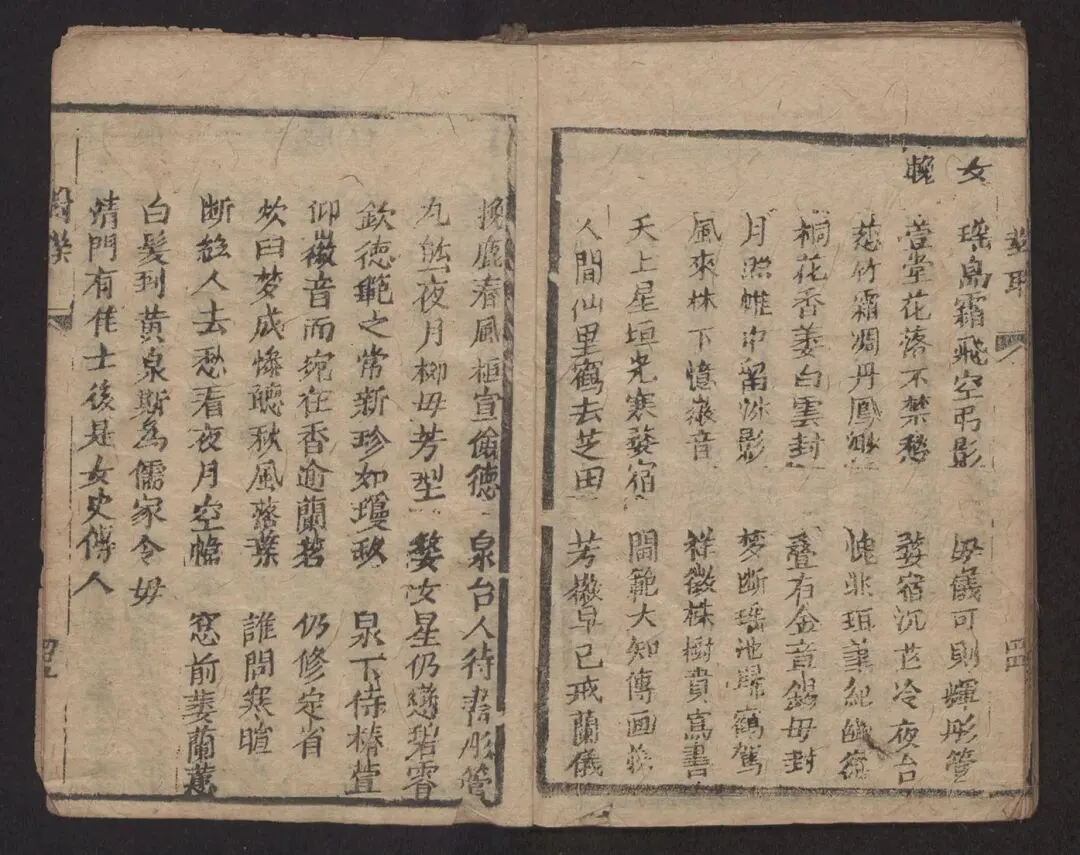 女
輓
瑤島霜飛空弔影 母儀可則輝彤管
萱堂花落不禁愁 婺宿沉芒冷夜台
慈竹霜凋丹鳳 愧非珥筆紀幽
桐花香萎白雲封 疊有金音錫母封
月照帷中留淑影 夢斷瑤池歸鶴駕
風來林下憶徽音 祥徵株樹貴寫書
天上星垣光寒婺宿 閫範大知傳画荻
人間仙里鶴去芝田 芳徽早已戒蘭儀
挽鹿春風桓宣儉德 泉台人待書彤管
丸熊夜月柳母芳型 婺女星仍戀碧霄
欽德範之常新珍如瓊玖 泉下待椿萱
仰徽音而宛在香逾蘭茗 仍修定省
炊臼梦成慘聴秋風落葉 誰問寒暄
断絃人去愁看夜月空幃 窓前萎蘭蕙
白髮到黃泉斯為儒家令母
清門有佳士後是女史傳人
四